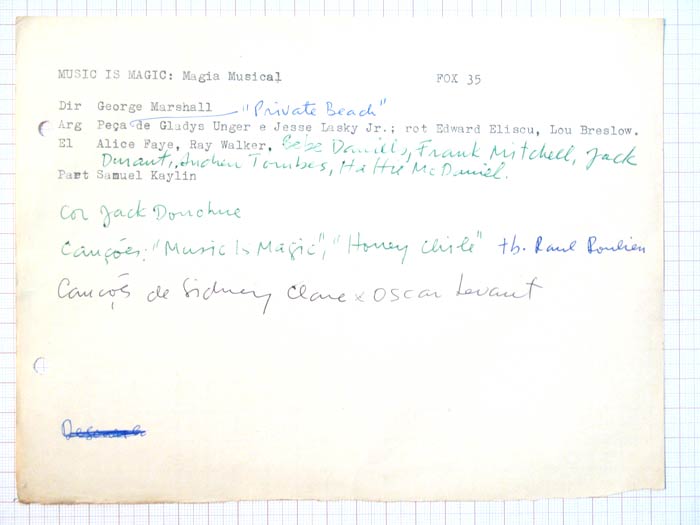 MUSIC IS MAGIC: Magia Musical FOX 35
Dir George Marshall "Private Beach"
Arg Peça de Gladys Unger e Jesse Lasky Jr.; rot Edward Eliscu, Lou Breslow.
El Alice Faye, Ray Walker, Bebe Daniels, Frank Mitchell, Jack
Durant, Andrew Tombes, Hattie McDaniel.
Part Samuel Kaylin
Cor Jack Donohue
Canções: "Music Is Magic", "Honey Chile" tb. Raul Roulien
Canções de Sidney Clare x Oscar Levant